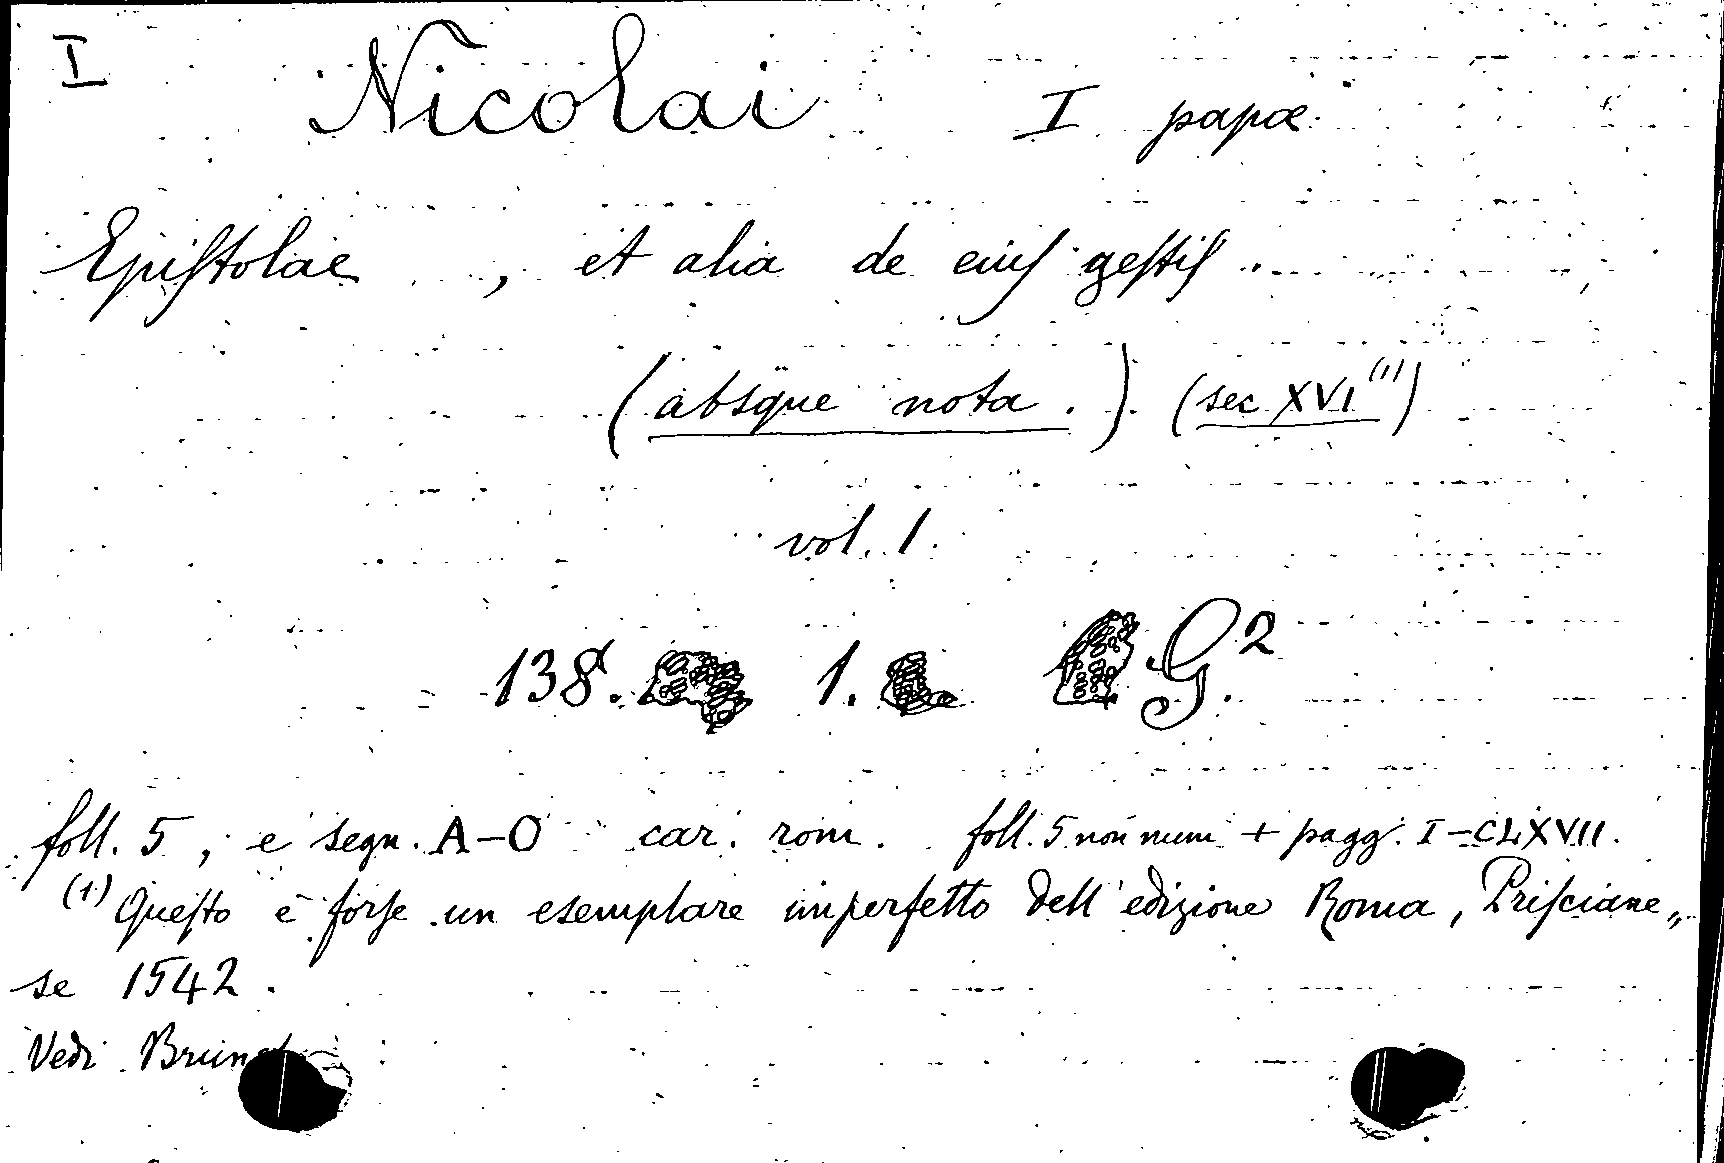 I
Nicolai I papæ
Epiſtolae , et alia de eiuſ geſtiſ ..
(absque nota.) (sec XVI (1))
vol. 1.
138. 1. G.2
foll. 5, e segn. A-O car. rom. foll. 5 non num + pagg. I-CLXVII.
(1) Queſto è forſe un esemplare imperfetto dell'edizione Roma, Priſciane„
se 1542.
Vedi Brunet